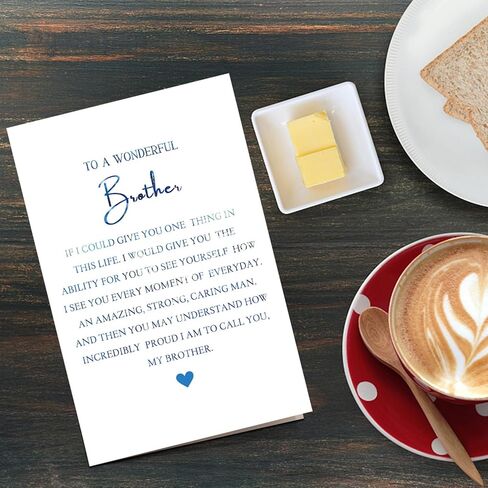 TO A WONDERFUL
Brother
IF I COULD GIVE YOU ONE THING IN
THIS LIFE, I WOULD GIVE YOU THE
ABILITY FOR YOU TO SEE YOURSELF HOW
I SEE YOU EVERY MOMENT OF EVERYDAY.
AN AMAZING, STRONG, CARING MAN,
AND THEN YOU MAY UNDERSTAND HOW
INCREDIBLY PROUD I AM TO CALL YOU,
MY BROTHER.